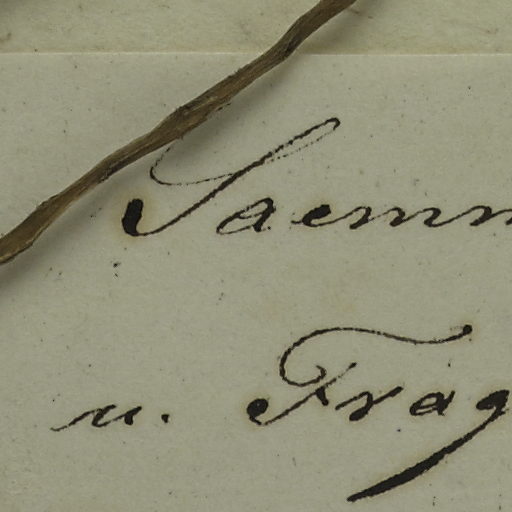 Saemm
u. Frag